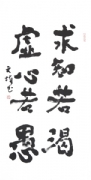 求知若渴
虚心若愚